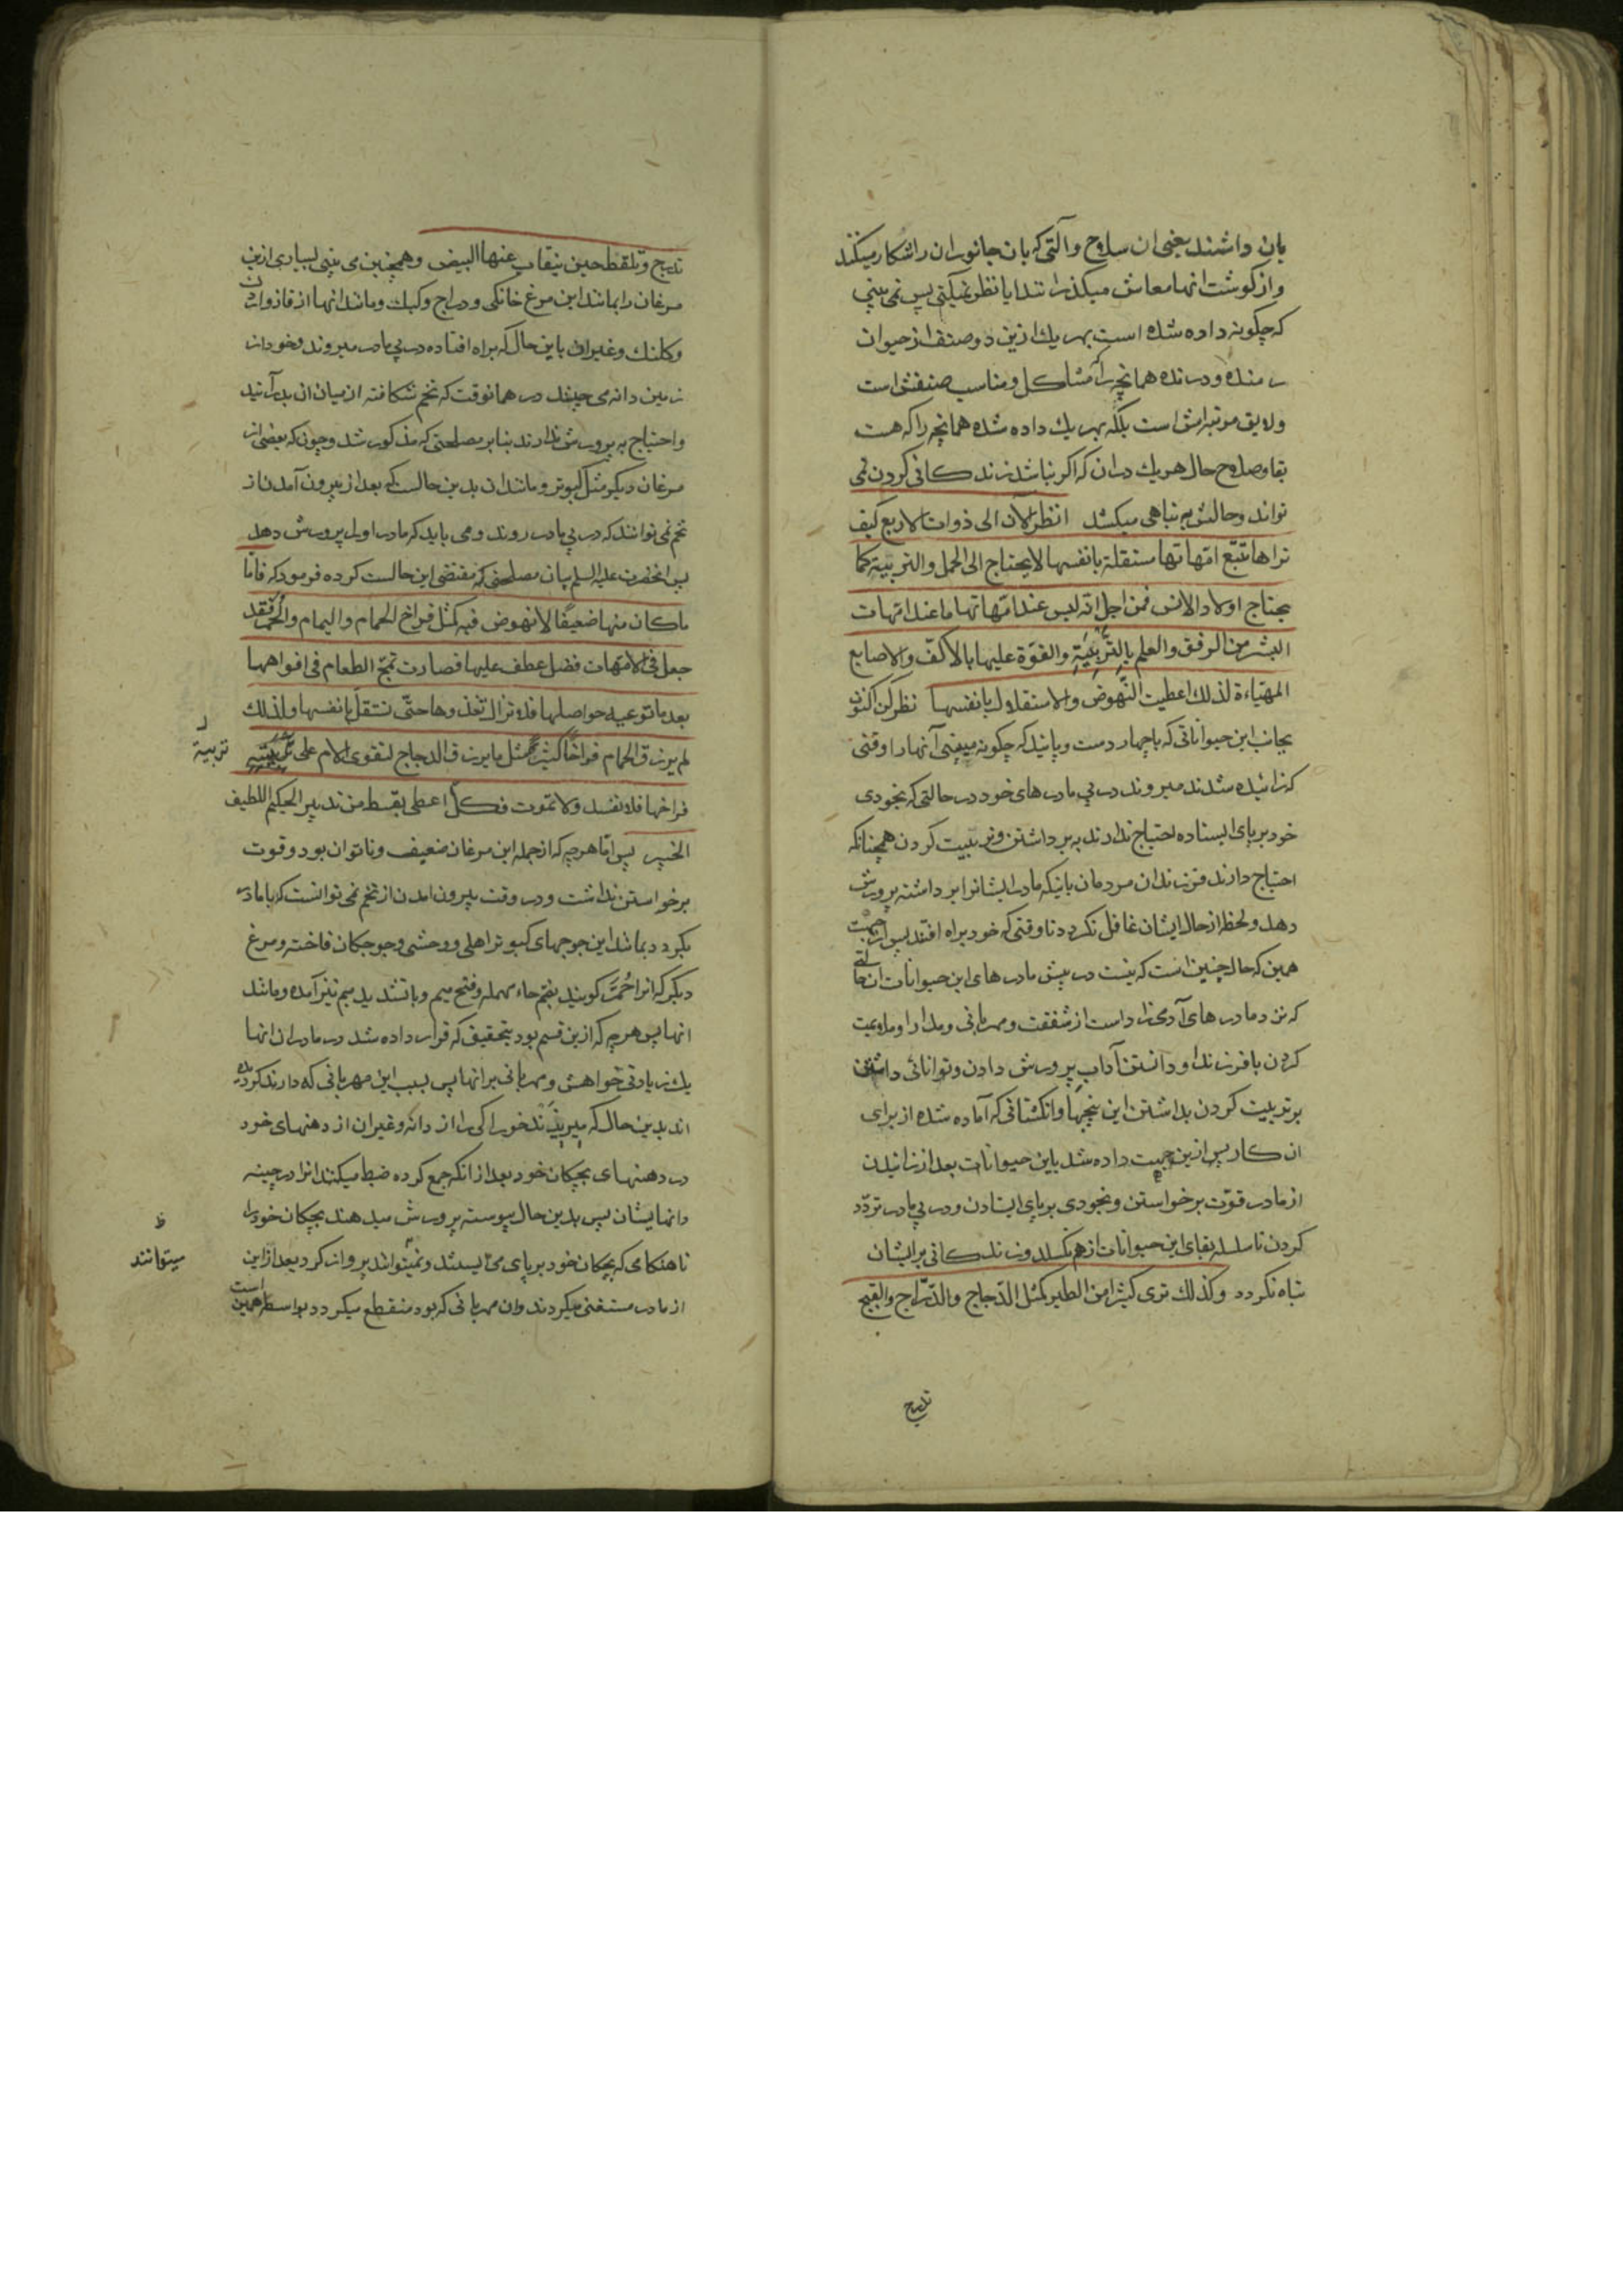 بان داشتند یعنی ان سلاح و آلتی که بان جانوران را شکار میکنند
و از کوشت انها معاش میکذرانند ایا نظر نمیکنی پس نمی بینی
که چکونه داده شده است بهر یک ازین دو صنف از حیوان
رمنده و درنده همانچه را که مشاکل و مناسب صنفش است
و لایق مرتبه اش است بلکه بهر یک داده شده همانچه را که هست
بقا و صلاح حال هر یک دران که اکر نباشد زندکانی کردن نمی
تواند و حالش به تباهی میکشد انظر الآن الی ذوات الاربع کیف
تراها تتبع امّهاتها مستقلة بانفسها لا یحتاج الی الحمل و التربیة کما
یحتاج اولاد الانس فمن اجل انّه لیس عند امّهاتها ما عند امّهات
البشر من الرفق و العلم بالتّربیَةِ و القوّة علیها بالاکفّ و الاصابع
المهیّاءة لذلک اعطیت النّهوض و الاستقلال بانفسها نظر کن اکنون
بجانب این حیواناتی که با چهار دست و پایند که چکونه میبینی آنها را وقتی
که زائیده شدند میروند در پی مادرهای خود در حالتی که بخودی
خود بر پای ایستاده احتیاج ندارند به برداشتن و تربیت کردن همچنانکه
احتیاج دارند فرزندان مردمان باینکه مادر ایشانرا برداشته پرورش
دهد و لحظه از حال ایشان غافل نکردد تا وقتی که خود براه افتند پس از جهت
همین که حال چنین است که نیست در پیش مادرهای این حیوانات ان حالتی
که نزد مادرهای آدمیزاد است از شفقت و مهربانی و مدارا و ملایمت
کردن با فرزندان و دانستن آداب پرورش دادن و توانائی داشتن
بر تربیت کردن بداشتن این پنجها و انکشتانی که آماده شده از برای
ان کار پس ازین جهت داده شد باین حیوانات بعد از زائیدن
از مادر قوّت برخواستن و بخودی بر پای ایستادن و در پی مادر تردّد
کردن تا سلسله بقای این حیوانات از هم نکسلد و زندکانی بر ایشان
تباه نکردد و کذلک تری کثیرا من الطیر کمثل الدّجاج و الدّرّاج و القبج
تدرج
تدرج و تلقط حین ینقاب عنها البیض و همچنین می بینی بسیاری ازین
مرغان را بمانند این مرغ خانکی و دراج و کبک و مانند انها از قاز و اردک
و کلنک و غیران باین حال که براه افتاده در پی مادر میروند و خود از
زمین دانه می چینند در همانوقت که تخم شکافته از میان ان بدر آیند
و احتیاج به پرورش ندارند بنابر مصلحتی که مذکور شد و چون که بعضی از
مرغان دیکر مثل کبوتر و مانند ان بدین حالست که بعد از بیرون آمدن از
تخم نمی توانند که در پی مادر روند و می باید که مادر اول پرورش دهد
پس انحضرت علیه السلم بیان مصلحتی که مقتضی این حالست کرده فرمود که فامّا
ما کان منها ضعیفًا لا نهوض فیه کمثل فراخ الحمام و الیمام و الحُمَّر فقد
جعل فی الامّهات فضل عطف علیها فصارت تمجّ الطعام فی افواهها
بعد ما توعیه حواصلها فلا تزال تغذوها حتّی تستقلّ بانفسها و لذلک
لم یرزق الحمام فراخًا کثیرةً مثل ما یرزق الدجاج لتقوی الام علی تربیته
تربیة
فراخها فلا تفسد و لا تموت فکلّ اعطی بقسط من تدبیر الحکیم اللطیف
الخبیر پس امّا هر چه که از جمله این مرغان ضعیف و ناتوان بود و قوت
برخواستن نداشت و در وقت بیرون امدن از تخم نمی توانست که با مادر
بکردد بمانند این جوجهای کبوتر اهلی و وحشی و جوجکان فاخته و مرغ
دیکر که انرا حُمَّر کویند بضم حاء مهمله و فتح میم و با تشدید میم نیز آمده و مانند
انها پس هر چه که ازین قسم بود بتحقیق که قرار داده شد در مادران انها
یک زیادتی خواهش و مهربانی بر انها پس بسبب این مهربانی که دارند کردیده
اند بدین حال که میریزند خوراکی را از دانه و غیران از دهنهای خود
در دهنهای بچکان خود بعد از انکه جمع کرده ضبط میکنند انرا در چینه
دانهایشان پس بدین حال پیوسته پرورش میدهند بچکان خود را
تا هنکامی که بچکان خود بر پای می ایستند و نمیتوانند پرواز کرد بعد از این
ظ
میتوانند
از مادر مستغنی میکردند و ان مهربانی که بود منقطع میکردد بواسطه همین است